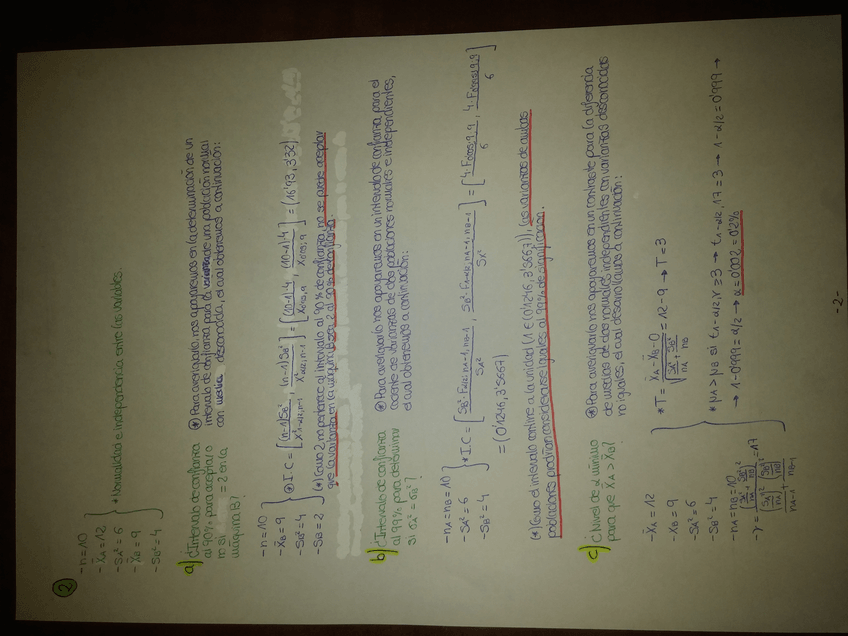 2
- n = 10
- X̄A = 12
- SA² = 6
- X̄B = 9
- SB² = 4
* Normalidad e independencia entre las variables.
a) ¿Intervalo de confianza
al 90% para aceptar o
no si = 2 en la
máquina B?
⊛ Para averiguarlo, nos apoyaremos en la determinación de un
intervalo de confianza para la de una población normal
con media desconocida, el cual obtenemos a continuación:
- n = 10
- X̄B = 9
- SB² = 4
- SB = 2
⊛ I.C = [(n-1)SB² / X²1-α/2, n-1 , (n-1)SB² / X²α/2, n-1] = [(10-1)4 / X0'95, 9 , (10-1)4 / X0'05, 9] = (
(*) Como 2 no pertenece al intervalo al 90% de confianza, no se puede aceptar
que la varianza en la máquina B sea 2 al 90% de confianza.
b) ¿Intervalo de confianza
al 99% para determinar
si σA² = σB²?
⊛ Para averiguarlo nos apoyaremos en un intervalo de confianza para el
cociente de varianzas de dos poblaciones normales e independientes,
el cual obtenemos a continuación:
- nA = nB = 10
- SA² = 6
- SB² = 4
* I.C = [SB² · Fα/2; nA-1, nB-1 / SA² , SB² · F1-α/2, nA-1, nB-1 / SA²] = [4 · F0'005, 9, 9 / 6 , 4 · F0'995, 9, 9 / 6]
= (0'1246, 3'5667)
(*) Como el intervalo contiene a la unidad (1 ∈ (0'1246, 3'5667)), las varianzas de ambas
poblaciones podrían considerarse iguales al 99% de significación.
c) ¿Nivel de α mínimo
para que X̄A > X̄B?
⊛ Para averiguarlo nos apoyaremos en un contraste para la diferencia
de medias de dos normales independientes con varianzas desconocidas
no iguales, el cual desarrollamos a continuación:
- X̄A = 12
- X̄B = 9
- SA² = 6
- SB² = 4
- nA = nB = 10
- γ = (SA²/nA + SB²/nB)² / ((SA²/nA)²/nA-1 + (SB²/nB)²/nB-1) = 17
* T = X̄A - X̄B - 0 / √(SA²/nA + SB²/nB) = 12 - 9 → T = 3
* μA > μB si t1-α/2, γ ≥ 3 → t1-α/2, 17 = 3 → 1-α/2 = 0'999 →
→ 1 - 0'999 = α/2 → α = 0'002 = 0'2%
- 2 -